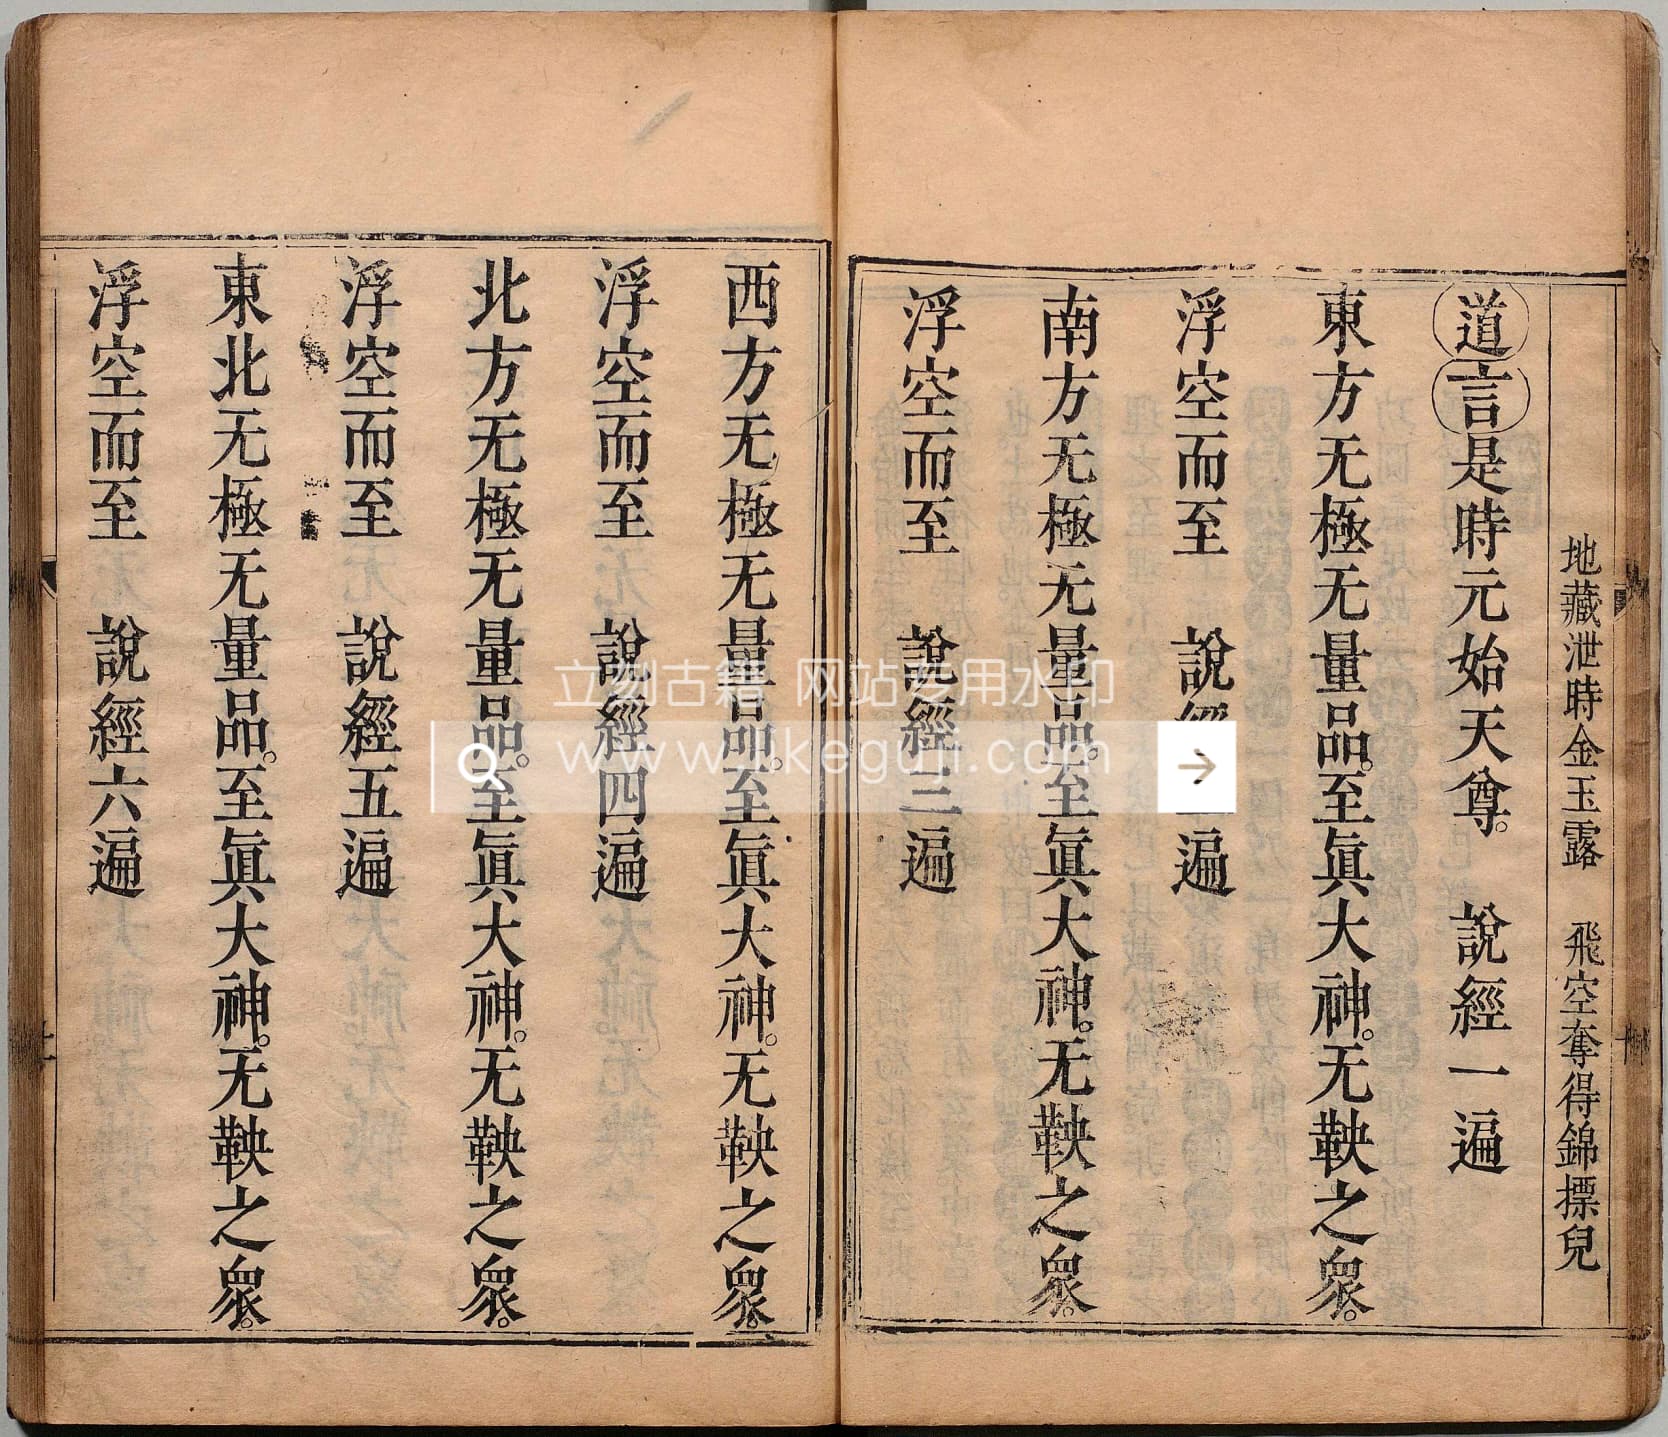 地藏泄時金玉露　飛空奪得錦摽兒
道言是時元始天尊。　說經一遍
東方无極无量品。至眞大神。无鞅之衆。
浮空而至　說經　遍
南方无極无量品。至眞大神。无鞅之衆。
浮空而至　說經三遍
西方无極无量品。至眞大神。无鞅之衆。
浮空而至　說經四遍
北方无極无量品。至眞大神。无鞅之衆。
浮空而至　說經五遍
東北无極无量品。至眞大神。无鞅之衆。
浮空而至　說經六遍
立刻古籍 网站专用水印
www.likeguji.com